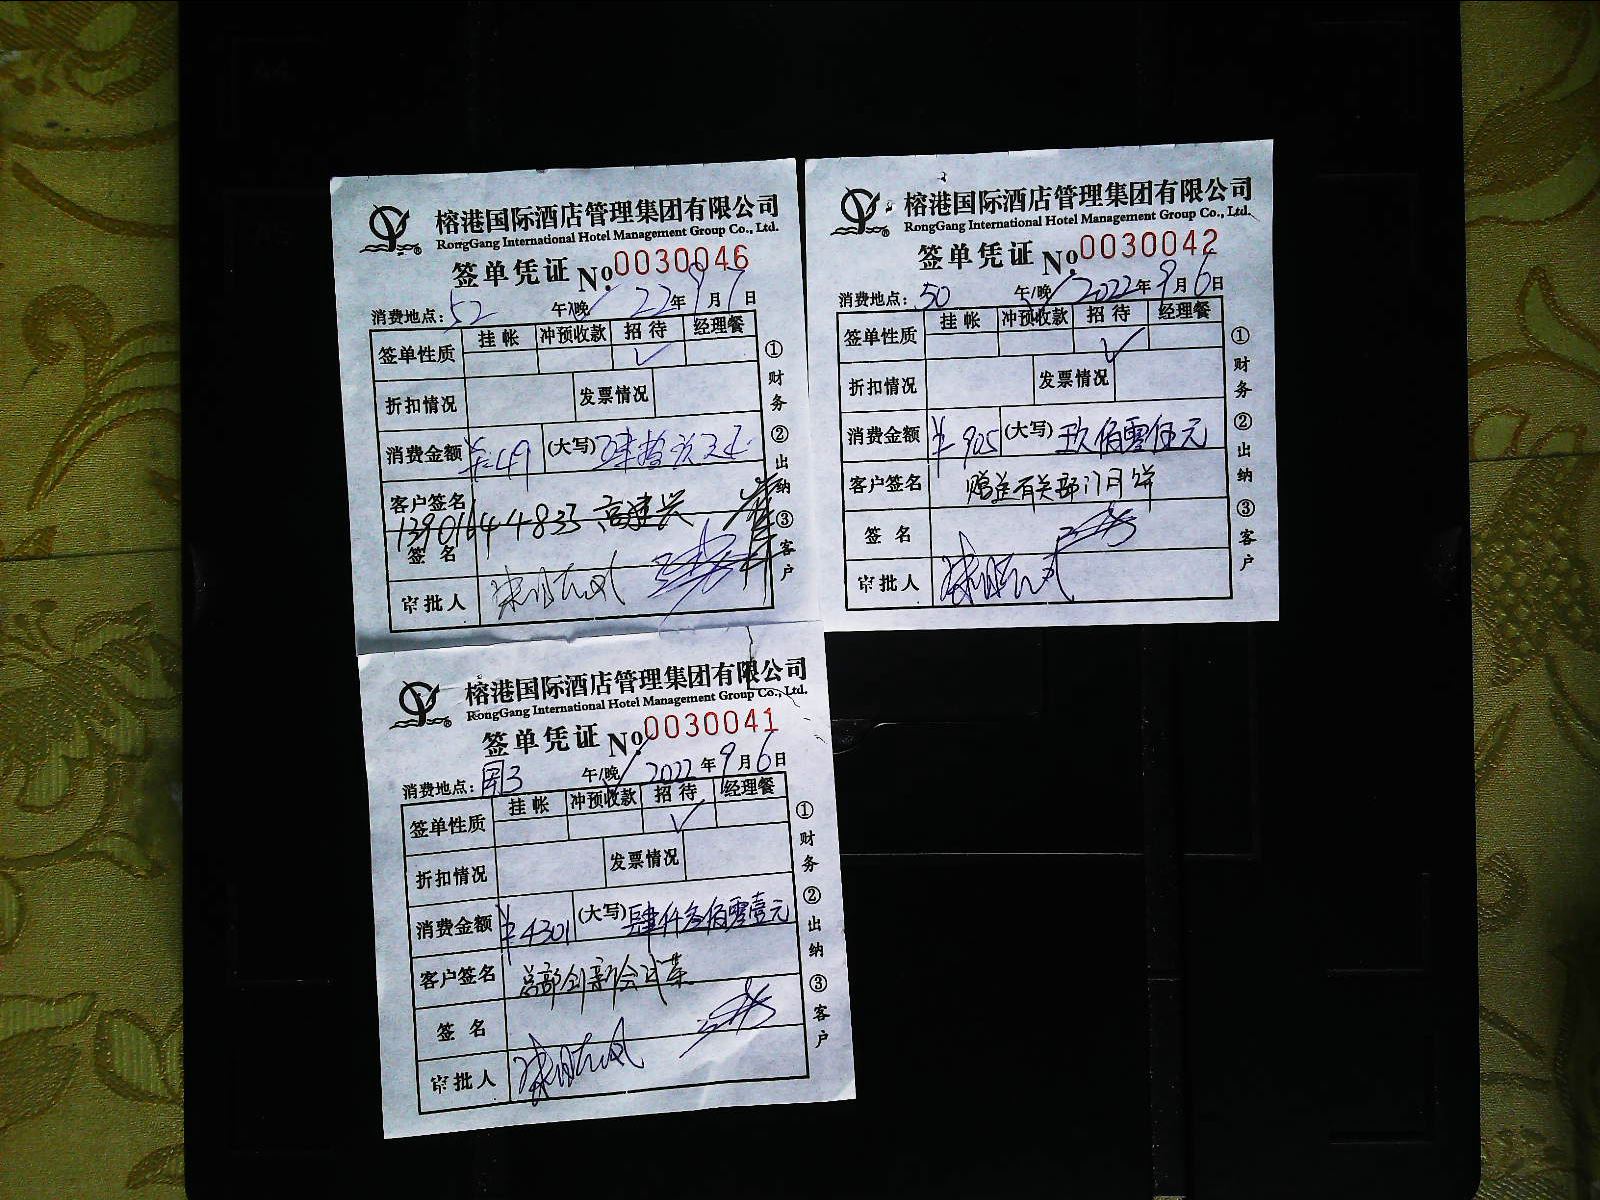 榕港国际酒店管理集团有限公司
RongGang International Hotel Management Group Co., Ltd.
签单凭证 No.0030046
消费地点: 52 午/晚 22年9月7日
签单性质 挂帐 冲预收款 招待 经理餐
✓
折扣情况 发票情况
消费金额 ¥49 (大写) 肆拾玖元正
客户签名
13901644833 高建兴
签名
审批人
①财务 ②出纳 ③客户
榕港国际酒店管理集团有限公司
RongGang International Hotel Management Group Co., Ltd.
签单凭证 No.0030042
消费地点: 50 午/晚 2022年9月6日
签单性质 挂帐 冲预收款 招待 经理餐
✓
折扣情况 发票情况
消费金额 ¥905 (大写) 玖佰零伍元
客户签名 赠送有关部门月饼
签名
审批人
①财务 ②出纳 ③客户
榕港国际酒店管理集团有限公司
RongGang International Hotel Management Group Co., Ltd.
签单凭证 No.0030041
消费地点: 3 午/晚 2022年9月6日
签单性质 挂帐 冲预收款 招待 经理餐
✓
折扣情况 发票情况
消费金额 ¥4301 (大写) 肆仟叁佰零壹元
客户签名 总部创新会试菜
签名
审批人
①财务 ②出纳 ③客户